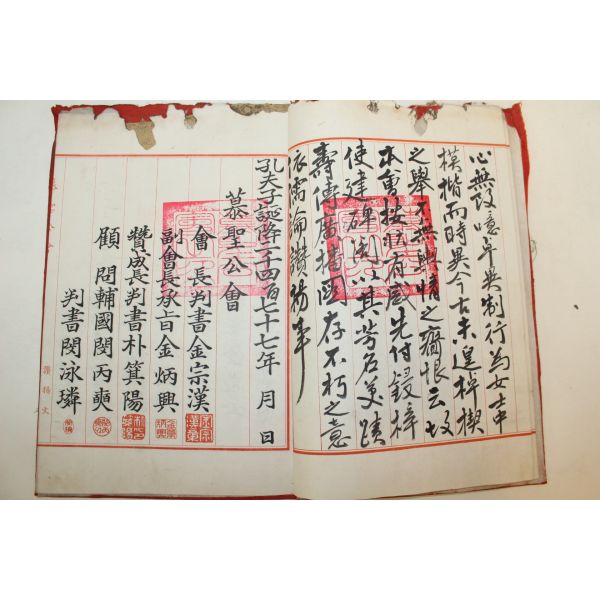 心無改噫年來制行為女士中
模楷而時異今古未遑棹楔
之擧不無輿情之齎恨云故
本會按狀有感先付鋟梓
使建碑閣以其芳名美蹟
壽傳廣播圖存不朽之意
依儒論讚揚事
孔夫子誕降二千四百七十七年 月 日
慕聖公會
會長判書金宗漢
副會長承旨金炳興
贊成長判書朴箕陽
顧問輔國閔丙奭
判書閔泳璘
讚揚文